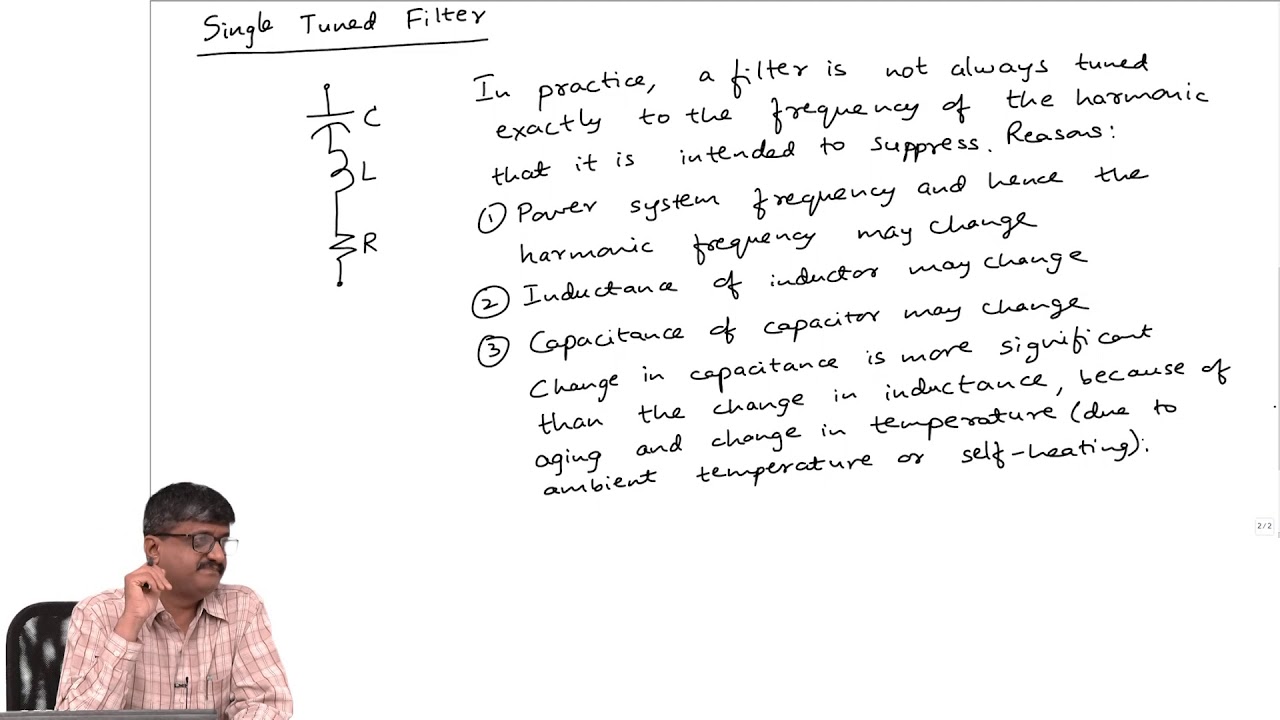 Single Tuned Filter
C
L
R
In practice, a filter is not always tuned
exactly to the frequency of the harmonic
that it is intended to suppress. Reasons:
① Power system frequency and hence the
harmonic frequency may change
② Inductance of inductor may change
③ Capacitance of capacitor may change
Change in capacitance is more significant
than the change in inductance, because of
aging and change in temperature (due to
ambient temperature or self-heating).
2/2